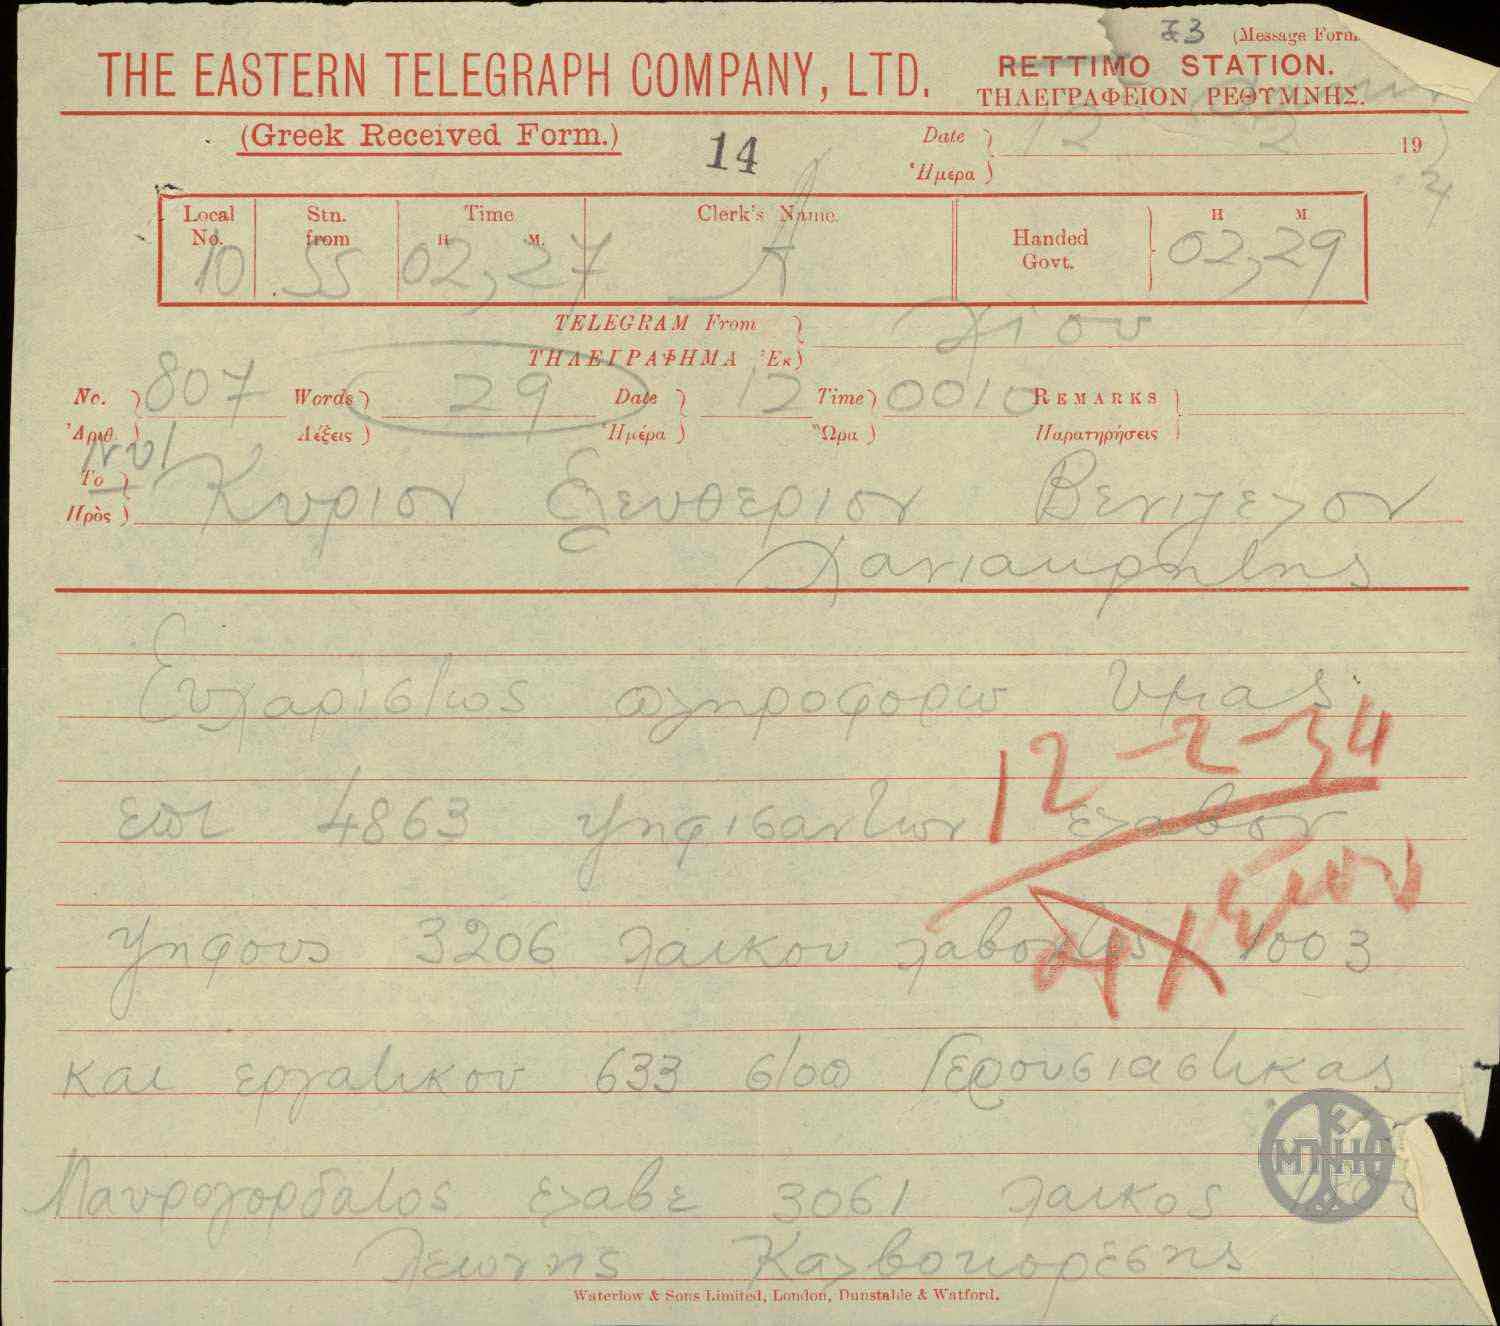 73 (Message Form
THE EASTERN TELEGRAPH COMPANY, LTD.
RETTIMO STATION.
ΤΗΛΕΓΡΑΦΕΙΟΝ ΡΕΘΥΜΝΗΣ.
(Greek Received Form.)
14
Date 12 2 19
Ἡμέρα
Local No. Stn. from Time H M. Clerk's Name. Handed Govt. H M.
10 SS 02,27 02,29
TELEGRAM From Χιου
ΤΗΛΕΓΡΑΦΗΜΑ Ἐκ
No. 807 Words 29 Date 12 Time 0010 REMARKS
Ἀριθ. Λέξεις Ἡμέρα Ὥρα Παρατηρήσεις
To Κυριον Ελευθεριον Βενιζελον
Πρὸς
Χανιακρητης
Ευχαριστως πληροφορω υμας
12-2-34
επι 4863 ψηφισαντων ελαβον
ψηφους 3206 λαικου λαβοντος 1003
και εργατικου 633 στοπ Γερουσιαστικας
Μαυρογορδατος ελαβε 3061 λαικος
ΜΠΗΚ
Λεωνης Καλβοκορεσης
Waterlow & Sons Limited, London, Dunstable & Watford.